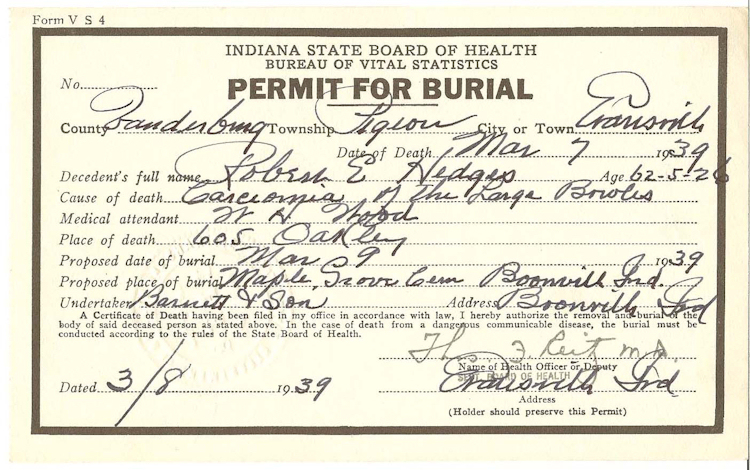 Form V S 4
INDIANA STATE BOARD OF HEALTH
BUREAU OF VITAL STATISTICS
No.
PERMIT FOR BURIAL
County Vanderburg Township Pigeon City or Town Evansville
Date of Death Mar 7 1939
Decedent's full name Robert E Hedges Age 62-5-26
Cause of death Carciomia of the Large Bowles
Medical attendant W H Wood
Place of death 605 Oakley
Proposed date of burial Mar 9 1939
Proposed place of burial Maple Grove Cem Boonvill Ind.
Undertaker Barnett & Son Address Boonvill Ind
A Certificate of Death having been filed in my office in accordance with law, I hereby authorize the removal and burial of the
body of said deceased person as stated above. In the case of death from a dangerous communicable disease, the burial must be
conducted according to the rules of the State Board of Health.
Reitz M.D.
Name of Health Officer or Deputy
BOARD OF HEALTH
Dated 3/8 1939 Evansvill Ind
Address
(Holder should preserve this Permit)